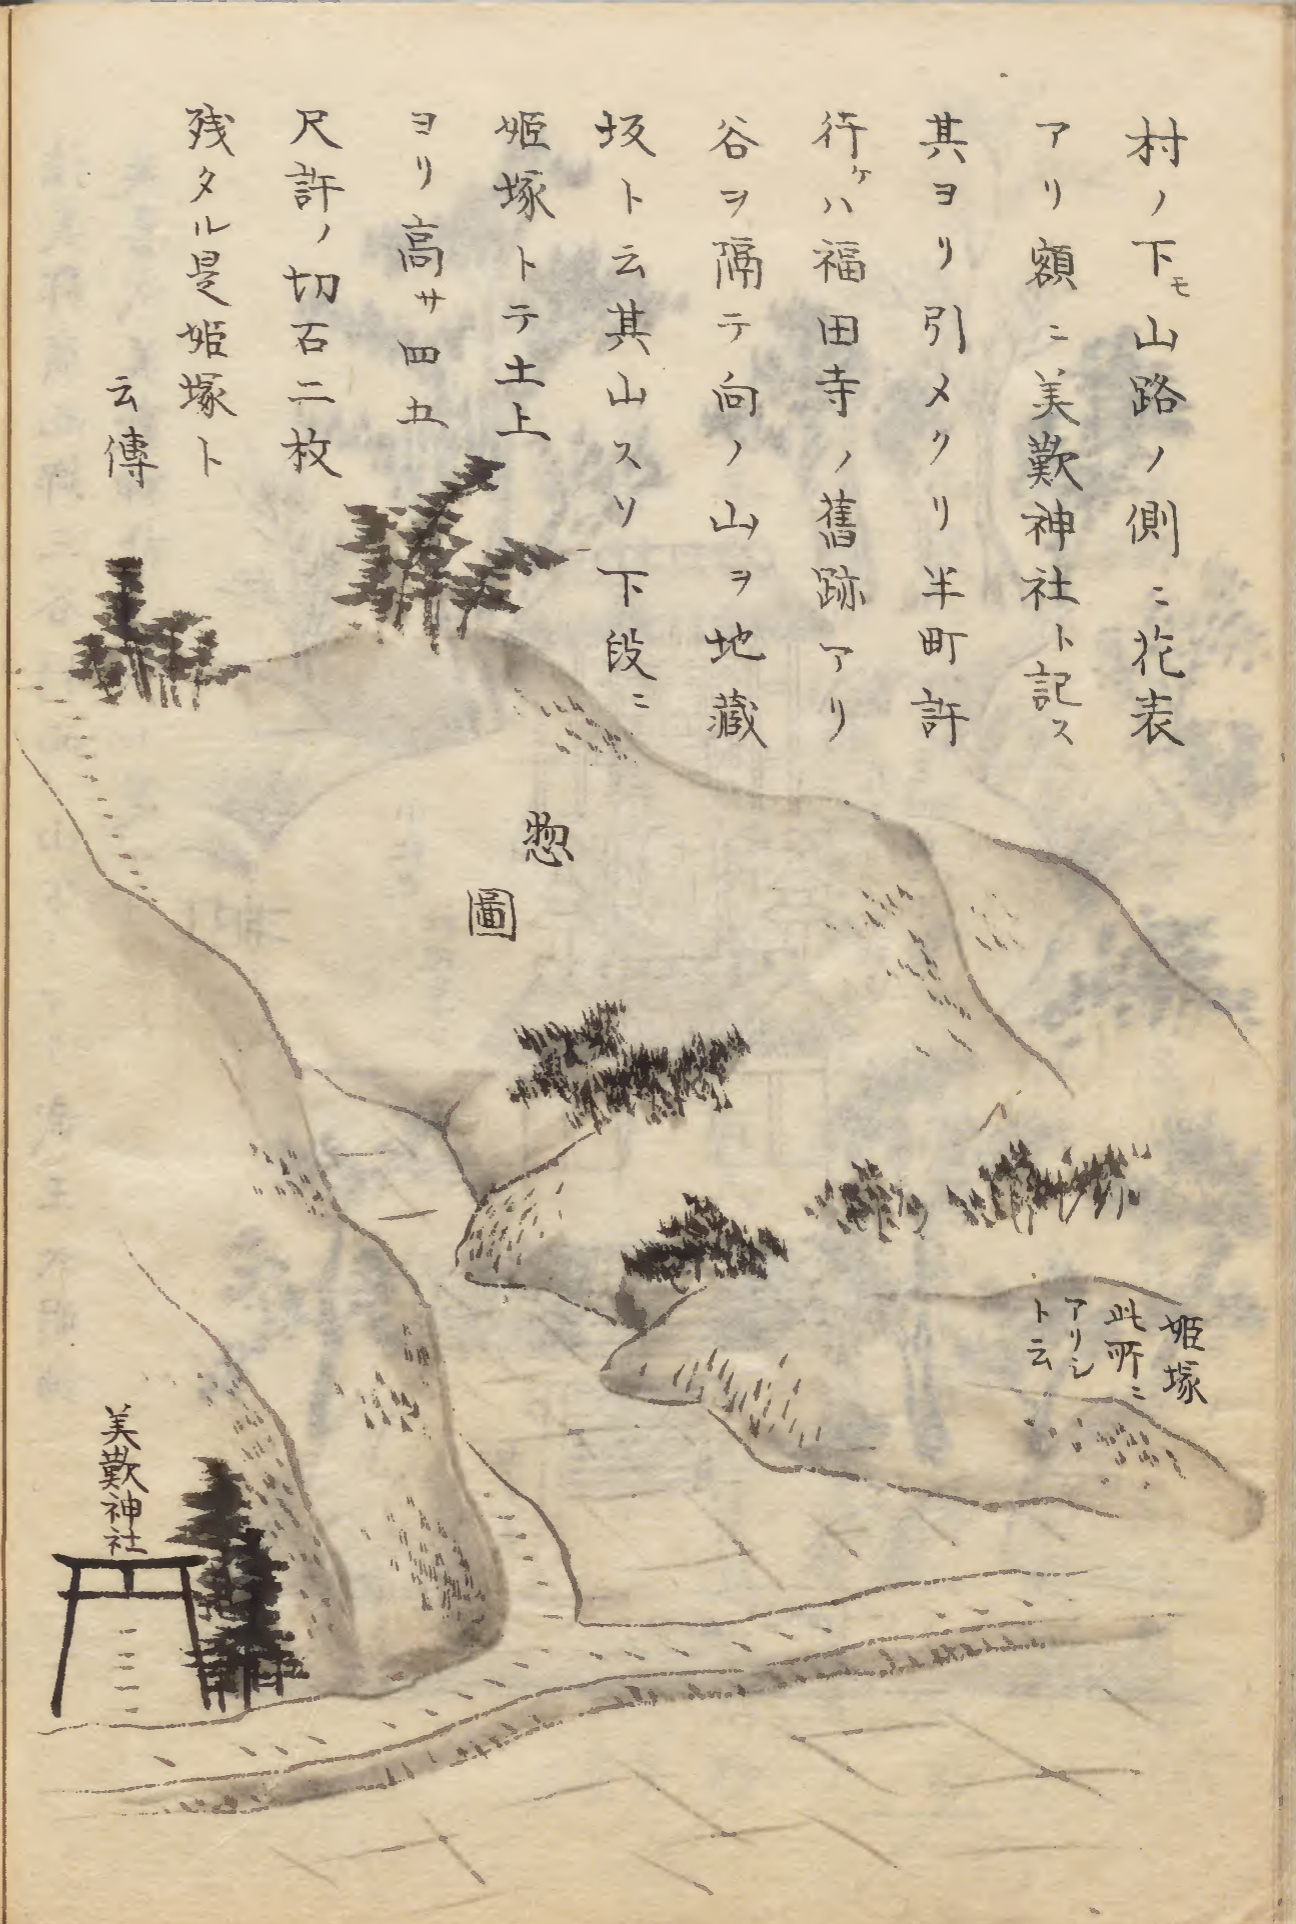 村ノ下モ山路ノ側ニ花表
アリ額ニ美歎神社ト記ス
其ヨリ引メクリ半町許
行ケハ福田寺ノ舊跡アリ
谷ヲ隔テ向ノ山ヲ地蔵
坂ト云其山スソ下段ニ
姫塚トテ土上
ヨリ高サ四五
尺許ノ切石二枚
残タル是姫塚ト
云傳
惣
圖
姫塚
此所ニ
アリシ
ト云
美歎神社